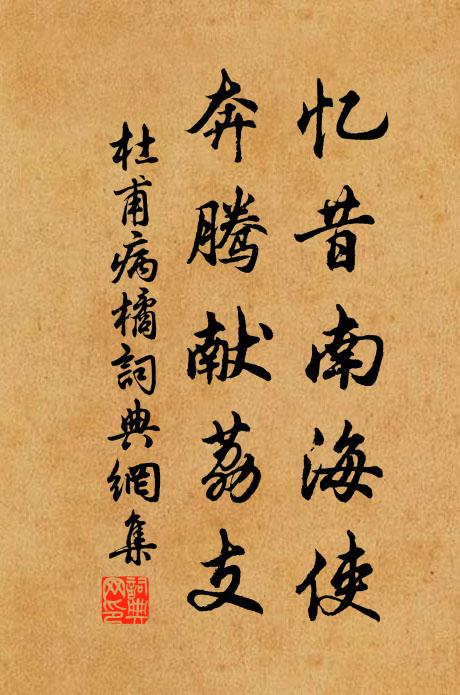 忆昔南海使
奔腾献荔支
杜甫病橘詞典網集
詞典網印